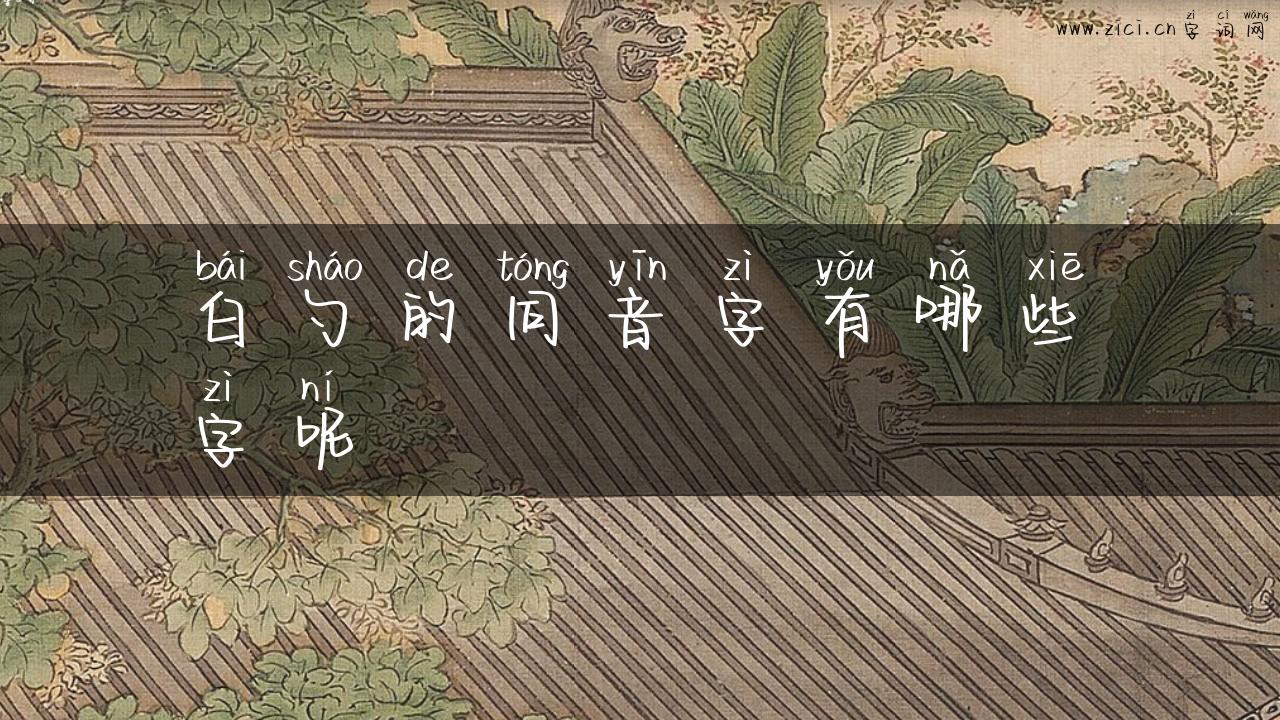 zì cí wǎng
www.zici.cn 字词网
bái sháo de tóng yīn zì yǒu nǎ xiē
白勺的同音字有哪些
zì ní
字呢